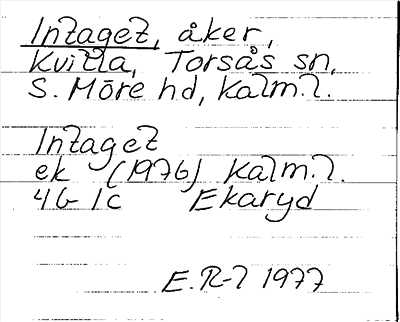 Intaget, åker,
Kvilla, Torsås sn,
S. Möre hd, Kalm. l.
Intaget
ek (1976) Kalm. l.
4G 1c Ekaryd
E. R-l 1977